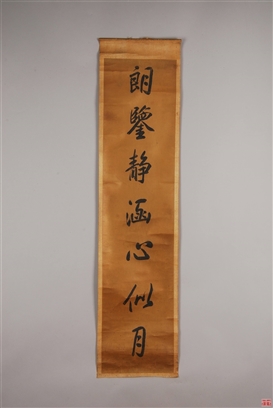 朗鑒静涵心似月